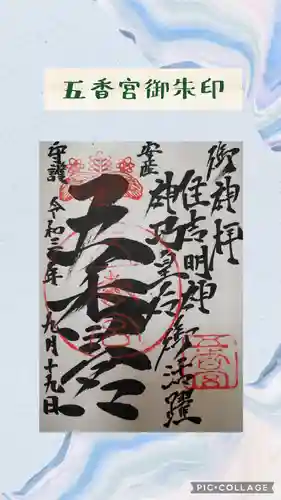 五香宮御朱印
御神拝
住吉明神
神功皇后御活躍
安産
五香宮
守護
令和三年九月十九日
五香宮
PIC•COLLAGE